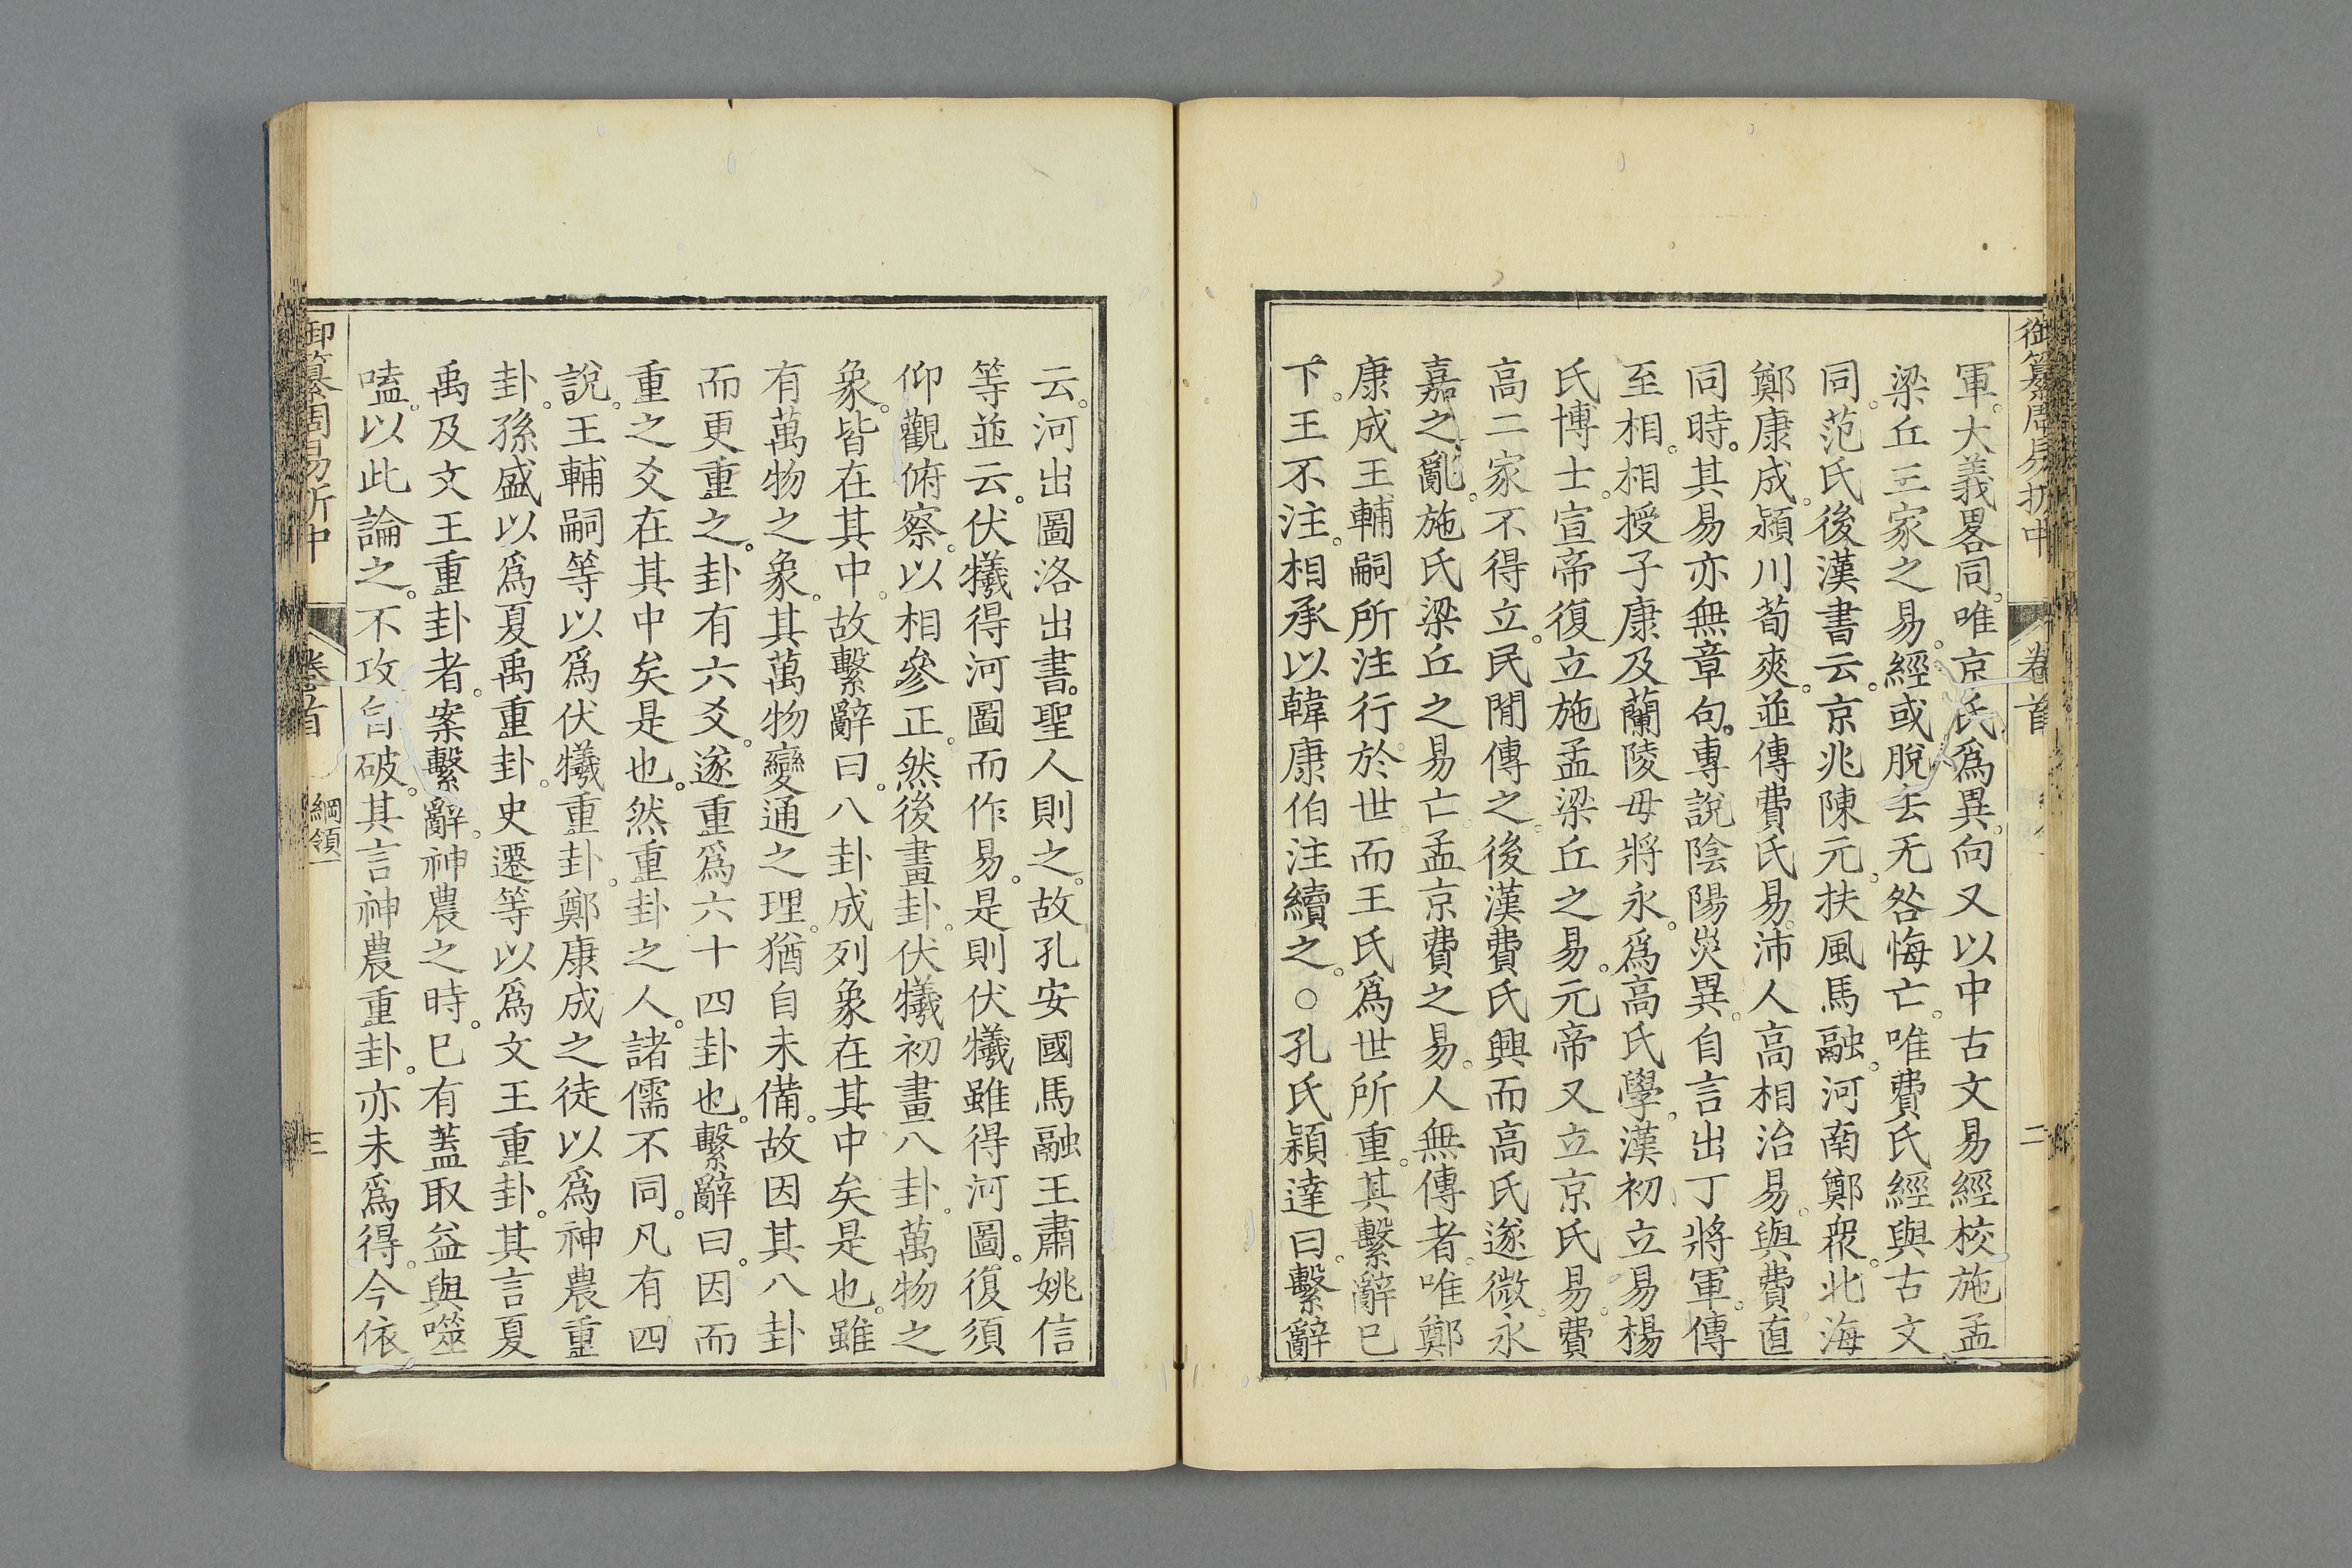 御纂周易折中 卷首 二
軍。大義畧同。唯京氏爲異。向又以中古文易經校施孟
梁丘三家之易。經或脫去无咎悔亡。唯費氏經與古文
同。范氏後漢書云。京兆陳元。扶風馬融。河南鄭衆。北海
鄭康成。潁川荀爽。並傳費氏易。沛人高相治易。與費直
同時。其易亦無章句。專說陰陽災異。自言出丁將軍。傳
至相。相授子康及蘭陵毋將永。爲高氏學。漢初立易楊
氏博士。宣帝復立施孟梁丘之易。元帝又立京氏易。費
高二家不得立。民閒傳之。後漢費氏興而高氏遂微。永
嘉之亂。施氏梁丘之易亡。孟京費之易。人無傳者。唯鄭
康成王輔嗣所注行於世。而王氏爲世所重。其繫辭已
下。王不注。相承以韓康伯注續之。○孔氏穎達曰。繫辭
云。河出圖洛出書。聖人則之。故孔安國馬融王肅姚信
等並云。伏犧得河圖而作易。是則伏犧雖得河圖。復須
仰觀俯察。以相參正。然後畫卦。伏犧初畫八卦。萬物之
象。皆在其中。故繫辭曰。八卦成列象在其中矣是也。雖
有萬物之象。其萬物變通之理。猶自未備。故因其八卦
而更重之。卦有六爻。遂重爲六十四卦也。繫辭曰。因而
重之爻在其中矣是也。然重卦之人。諸儒不同。凡有四
說。王輔嗣等以爲伏犧重卦。鄭康成之徒以爲神農重
卦。孫盛以爲夏禹重卦。史遷等以爲文王重卦。其言夏
禹及文王重卦者。案繫辭。神農之時。已有蓋取益與噬
嗑。以此論之。不攻自破。其言神農重卦。亦未爲得。今依
御纂周易折中 卷首 綱領一 三